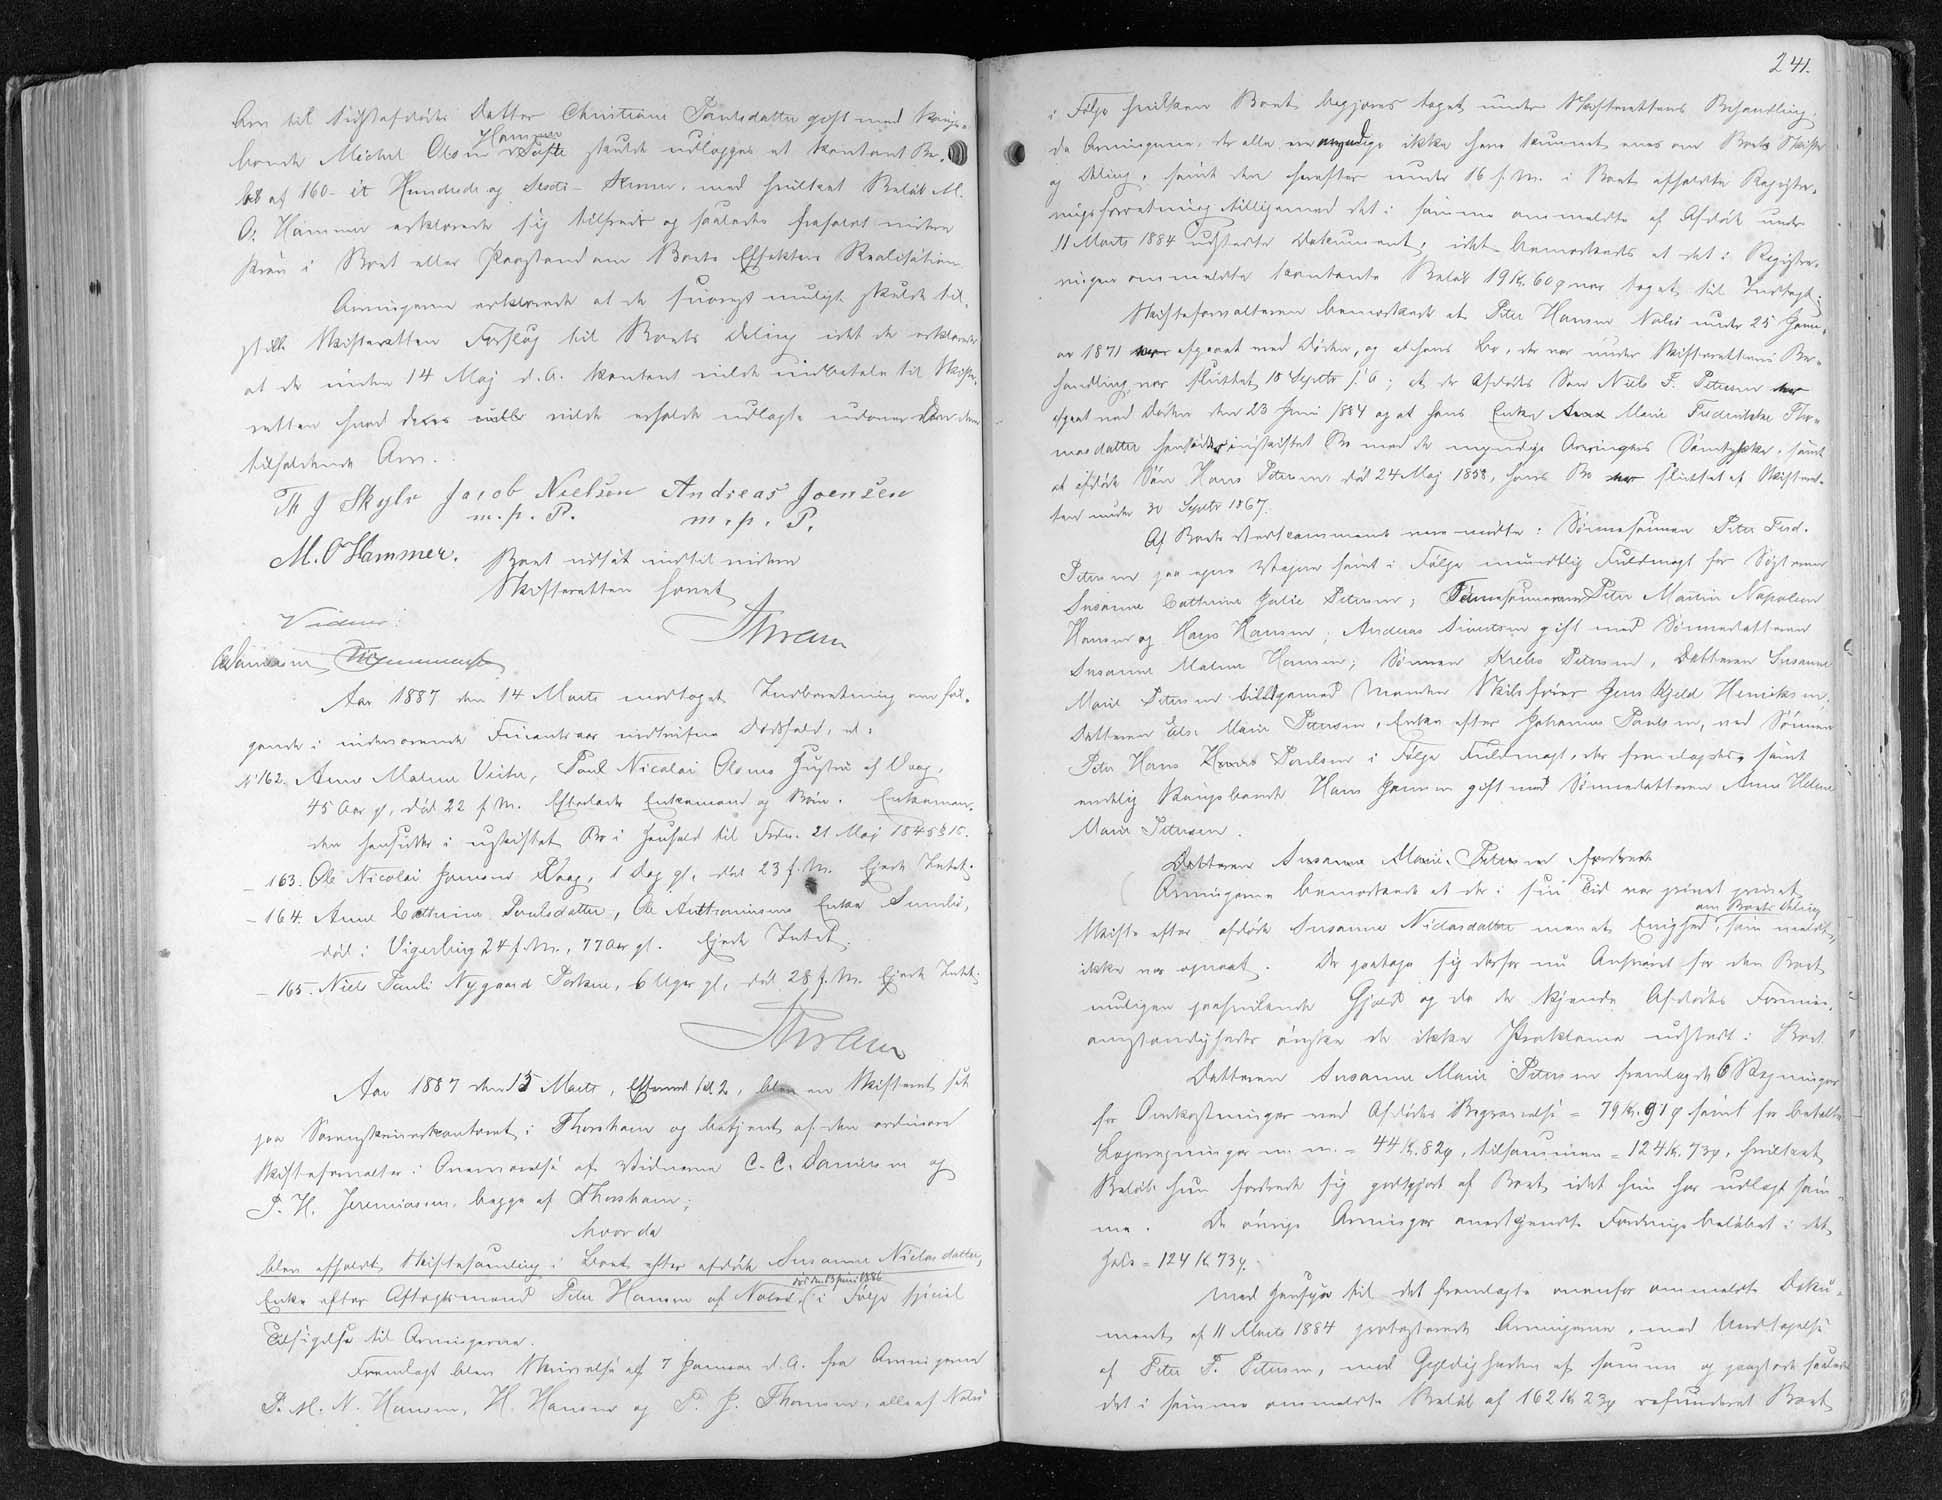 Arv til sidstafdødes Datter Christiane Poulsdatter gift med Kongs-
bonde Michel Olsen Hammer Tofte skulde udlægges et kontant Be-
løb af 160 - et Hundrede og Sexti - Kroner, med hvilket Beløb M.
O. Hammer erklærede sig tilfreds og saaledes frafaldt videre
Krav i Boet eller Paastand om Boets Effekters Realisation.
Arvingerne erklærede at de snarest muligt skulde til-
stille Skifteretten Forslag til Boets Deling idet de erklærede
at de inden 14 Maj d.A. kontant vilde indbetale til Skifte-
retten hvad deres vilde erholde udlagt udover den dem
tilfaldende Arv.
Th J Skylv Jacob Nielsen Andreas Joensen
m. p. P. m. p. P.
M. O Hammer. Boet udsat indtil videre
Skifteretten hævet
Vidner:
Aar 1887 den 14 Marts modtaget Indberetning om føl-
gende i indeværende Finantsaar indtrufne Dødsfald, nl:
No 162. Anne Malene Vilh, Poul Nicolai Olsens Hustru af Vaag,
45 Aar gl, død 22 f. M. Efterlader Enkemand og Børn. Enkeman-
den hensidder i uskiftet Bo i Henhold til Frdn. 21 Maj 1845 § 18.
- 163. Ole Nicolai Joensen Vaag, 1 Dag gl, død 23 f. M. Ejede Intet.
- 164. Anne Cathrine Poulsdatter, Ole Enke Sumbø,
død i Vigerbirg 24 f. M., 77 Aar gl. Ejede Intet.
- 165. Niels Pauli Nygaard Porkere, 6 Uger gl, død 28 f. M. Ejede Intet.
Aar 1887 den 15 Marts, Efterm. Kl. 2, blev en Skifteret sat
paa Sorenskriverkontoret i Thorshavn og betjent af den ordinære
Skifteforvalter i Overværelse af Vidnerne C. C. Danielsen og
P. H. Jeremiassen, begge af Thorshavn;
hvorda
blev afholdt Skiftesamling i Boet efter afdøde Susanne Niclasdatter,
død den 13 Juni 1886
Enke efter Aftægtsmand Peter Hansen af Nolsø (i Følge speciel
Tilsigelse til Arvingerne.
Fremlagt blev Skrivelse af 7 Januar d. A. fra Arvingerne
P. M. N. Hansen, H. Hansen og P. J. Thomsen, alle af Nolsø
241.
i Følge hvilken Boet begjæres taget under Skifterettens Behandling,
da Arvingerne, der alle ere myndige ikke have kunnet enes om Boets Skifte
og Deling, samt den herefter under 16 f. M. i Boet afholdte Registre-
ringsforretning tilligemed det i samme ommeldte af Afdøde under
11 Marts 1884 udstedte Dokument, idet bemærkedes at det i Registre-
ringen ommeldte kontante Beløb 19 Kr. 60 ø var taget til Indtægt.
Skifteforvalteren bemærkede at Peter Hansen Nolsø under 25 Janu-
ar 1871 var afgaaet ved Døden, og at hans Bo, der var under Skifterettens Be-
handling, var sluttet 18 Septbr s. A; at de Afdødes Søn Niels F. Petersen var
afgaaet ved Døden den 23 Juni 1884 og at hans Enke Anne Marie Frederikke Tho-
masdatter hensidder i uskiftet Bo med de myndige Arvingers Samtykke, samt
at afdøde Søn Hans Petersen død 24 Maj 1858, hans Bo var sluttet af Skifteret-
ten under 30 Septbr 1867.
Af Boets Vedkommende vare mødte: Sønnesønnen Peter Fred.
Petersen paa egne Vegne samt i Følge mundtlig Fuldmagt for Søsteren
Susanne Cathrine Julie Petersen; Sønnesønnerne Peter Martin Napoleon
Hansen og Hans Hansen; Andreas Sivertsen gift med Sønnedatteren
Susanne Malene Hansen; Sønnen Krebs Petersen, Datteren Susanne
Marie Petersen tilligemed Manden Skibsfører Jens Kjeld Henriksen;
Datteren Else Marie Petersen, Enke efter Johannes Poulsen, ved Sønnen
Peter Hans Poulsen i Følge Fuldmagt, der fremlagdes, samt
endelig Kongsbonde Hans Jensen gift med Sønnedatteren Anne Helene
Marie Petersen.
Datteren Susanne Marie Petersen fordrede
Arvingerne bemærkede at der i sin Tid var prøvet privat
om Boets Deling
Skifte efter afdøde Susanne Niclasdatter men at Enighed, som meldt,
ikke var opnaaet. De paatage sig derfor nu Ansvaret for den Boet
muligen paahvilende Gjæld og da de kjende Afdødes Formues-
omstændigheder ønske de ikke Proklama udstedt i Boet.
Datteren Susanne Marie Petersen fremlagde 6 Regninger
for Omkostninger ved Afdødes Begravelse = 79 Kr. 91 ø samt for betalte
Lægeregninger m. m. = 44 Kr. 82 ø, tilsammen = 124 Kr. 73 ø, hvilket
Beløb hun fordrede sig godtgjort af Boet, idet hun har udlagt sam-
me. De øvrige Arvinger anerkjendte Fordringsbeløbet i det
Hele = 124 Kr 73 ø.
Med Hensyn til det fremlagte ovenfor ommeldte Doku-
ment af 11 Marts 1884 protesterede Arvingerne, med Undtagelse
af Peter F. Petersen, mod Gyldigheden af samme og paastode saaledes
det i samme ommeldte Beløb af 162 Kr 23 ø refunderet Boet